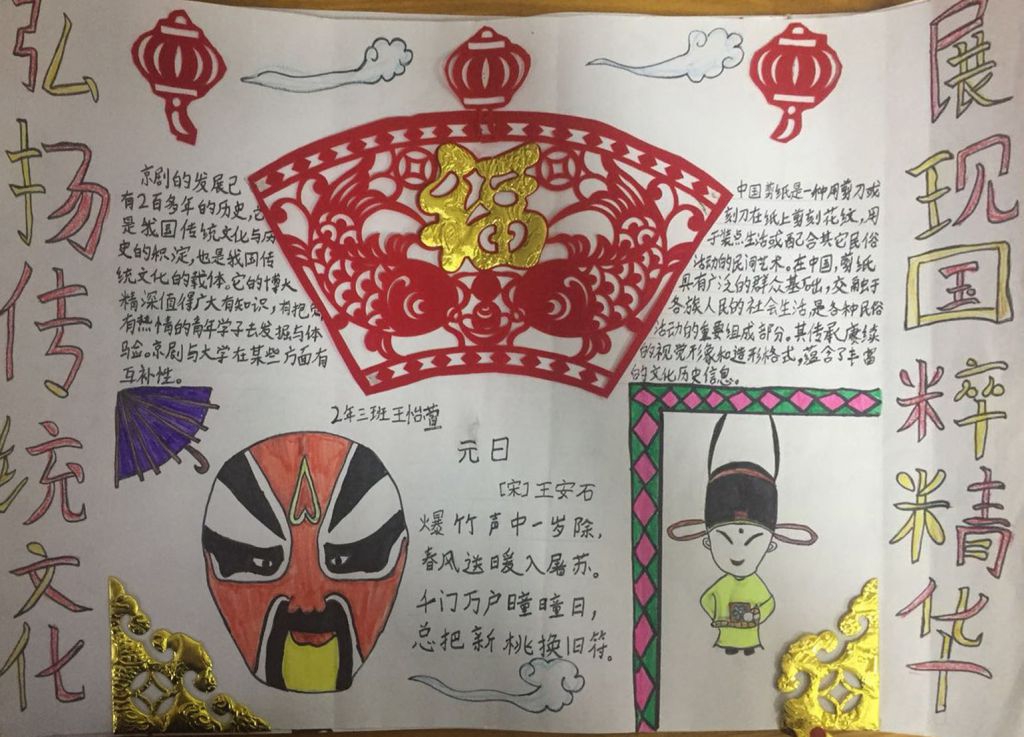 弘扬传统文化
京剧的发展已
有2百多年的历史，它
是我国传统文化与历
史的积淀，也是我国传
统文化的载体。它的博大
精深值得广大有知识，有把忠
有热情的青年学子去发掘与体
验。京剧与大学在某些方面有
互补性。
福
中国剪纸是一种用剪刀或
刻刀在纸上剪刻花纹，用
于装点生活或配合其它民俗
活动的民间艺术。在中国，剪纸
具有广泛的群众基础，交融于
各族人民的社会生活，是各种民俗
活动的重要组成部分。其传承赓续
的视觉形象和造形格式，蕴含了丰富
的文化历史信息。
2年三班王怡萱
元日
[宋]王安石
爆竹声中一岁除，
春风送暖入屠苏。
千门万户曈曈日，
总把新桃换旧符。
展现国粹精华